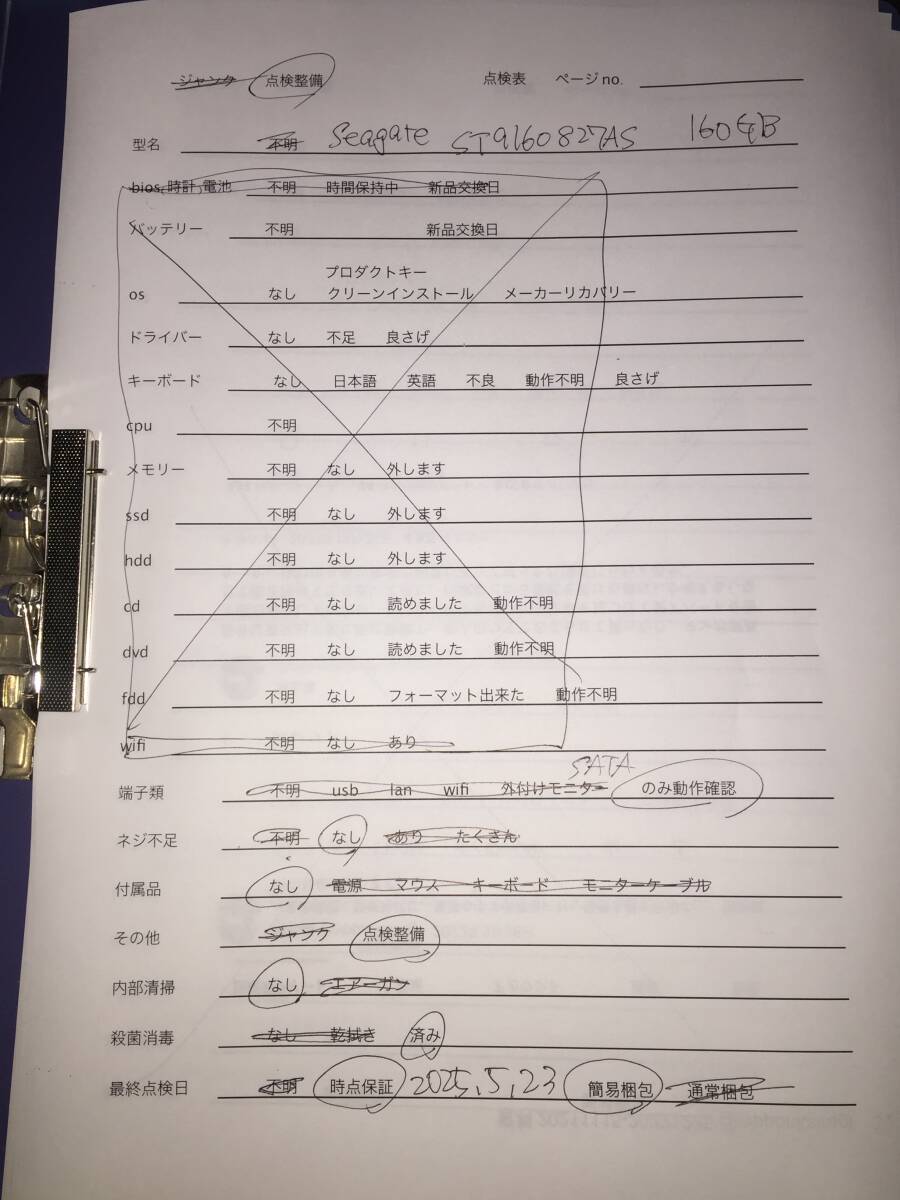 ジャンク 点検整備 点検表 ページno.
型名 不明 Seagate ST9160827AS 160GB
bios,時計,電池 不明 時間保持中 新品交換日
バッテリー 不明 新品交換日
プロダクトキー
os なし クリーンインストール メーカーリカバリー
ドライバー なし 不足 良さげ
キーボード なし 日本語 英語 不良 動作不明 良さげ
cpu 不明
メモリー 不明 なし 外します
ssd 不明 なし 外します
hdd 不明 なし 外します
cd 不明 なし 読めました 動作不明
dvd 不明 なし 読めました 動作不明
fdd 不明 なし フォーマット出来た 動作不明
wifi 不明 なし あり
SATA
端子類 不明 usb lan wifi 外付けモニター のみ動作確認
ネジ不足 不明 なし あり たくさん
付属品 なし 電源 マウス キーボード モニターケーブル
その他 ジャンク 点検整備
内部清掃 なし エアーガン
殺菌消毒 なし 乾拭き 済み
最終点検日 不明 時点保証 2025,5,23 簡易梱包 通常梱包